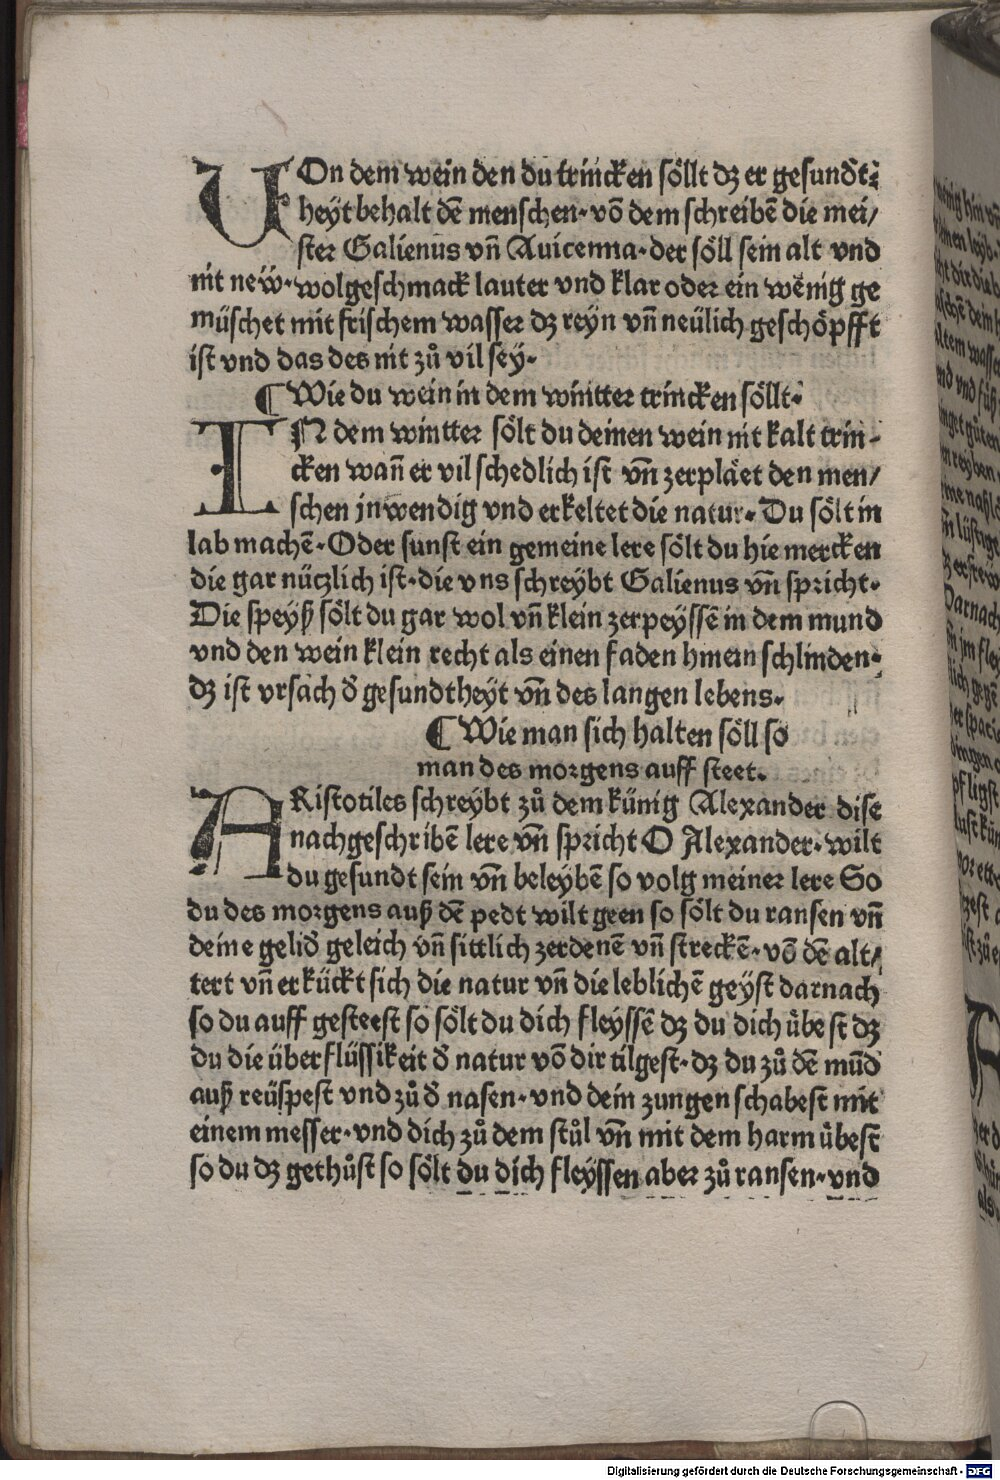 VOn dem wein den du trincken söllt dz er gesundt⸗
heyt behalt dē menschen · vō dem schreibē die mei/
ster Galienus vn̄ Auicenna · der söll sein alt vnd
nit new · wolgeschmack lauter vnd klar oder ein wenig ge
müschet mit frischem wasser dz reyn vn̄ neülich geschöpfft
ist vnd das des nit zů vil sey ·
¶ Wie du wein in dem wintter trincken söllt ·
IN dem wintter sölt du deinen wein nit kalt trin⸗
cken wan̄ er vil schedlich ist vn̄ zerpläet den men/
schen jnwendig vnd erkeltet die natur · Du sölt in
lab machē · Oder sunst ein gemeine lere sölt du hie mercken
die gar nüczlich ist · die vns schreybt Galienus vn̄ spricht ·
Die speyß sölt du gar wol vn̄ klein zerpeyssē in dem mund
vnd den wein klein recht als einen faden hinein schlinden ·
dz ist vrsach d̄ gesundtheyt vn̄ des langen lebens ·
¶ Wie man sich halten söll so
man des morgens auff steet .
ARistotiles schreybt zů dem künig Alexander dise
nachgeschribē lere vn̄ spricht O Alexander · wilt
du gesundt sein vn̄ beleybē so volg meiner lere So
du des morgens auß dē pedt wilt geen so sölt du ransen vn̄
deine gelid̄ geleich vn̄ sittlich zerdenē vn̄ streckē · vō dē alt/
tert vn̄ erkückt sich die natur vn̄ die leblichē geyst darnach
so du auff gesteest so sölt du dich fleyssē dz du dich übest dz
du die überflüssikeit d̄ natur vō dir tilgest · dz du zů dē mūd
auß reüspest vnd zů d̄ nasen · vnd dein zungen schabest mit
einem messer · vnd dich zů dem stůl vn̄ mit dem harm übest
so du dz gethůst so sölt du dich fleyssen aber zů ransen · vnd
Digitalisierung gefördert durch die Deutsche Forschungsgemeinschaft - DFG